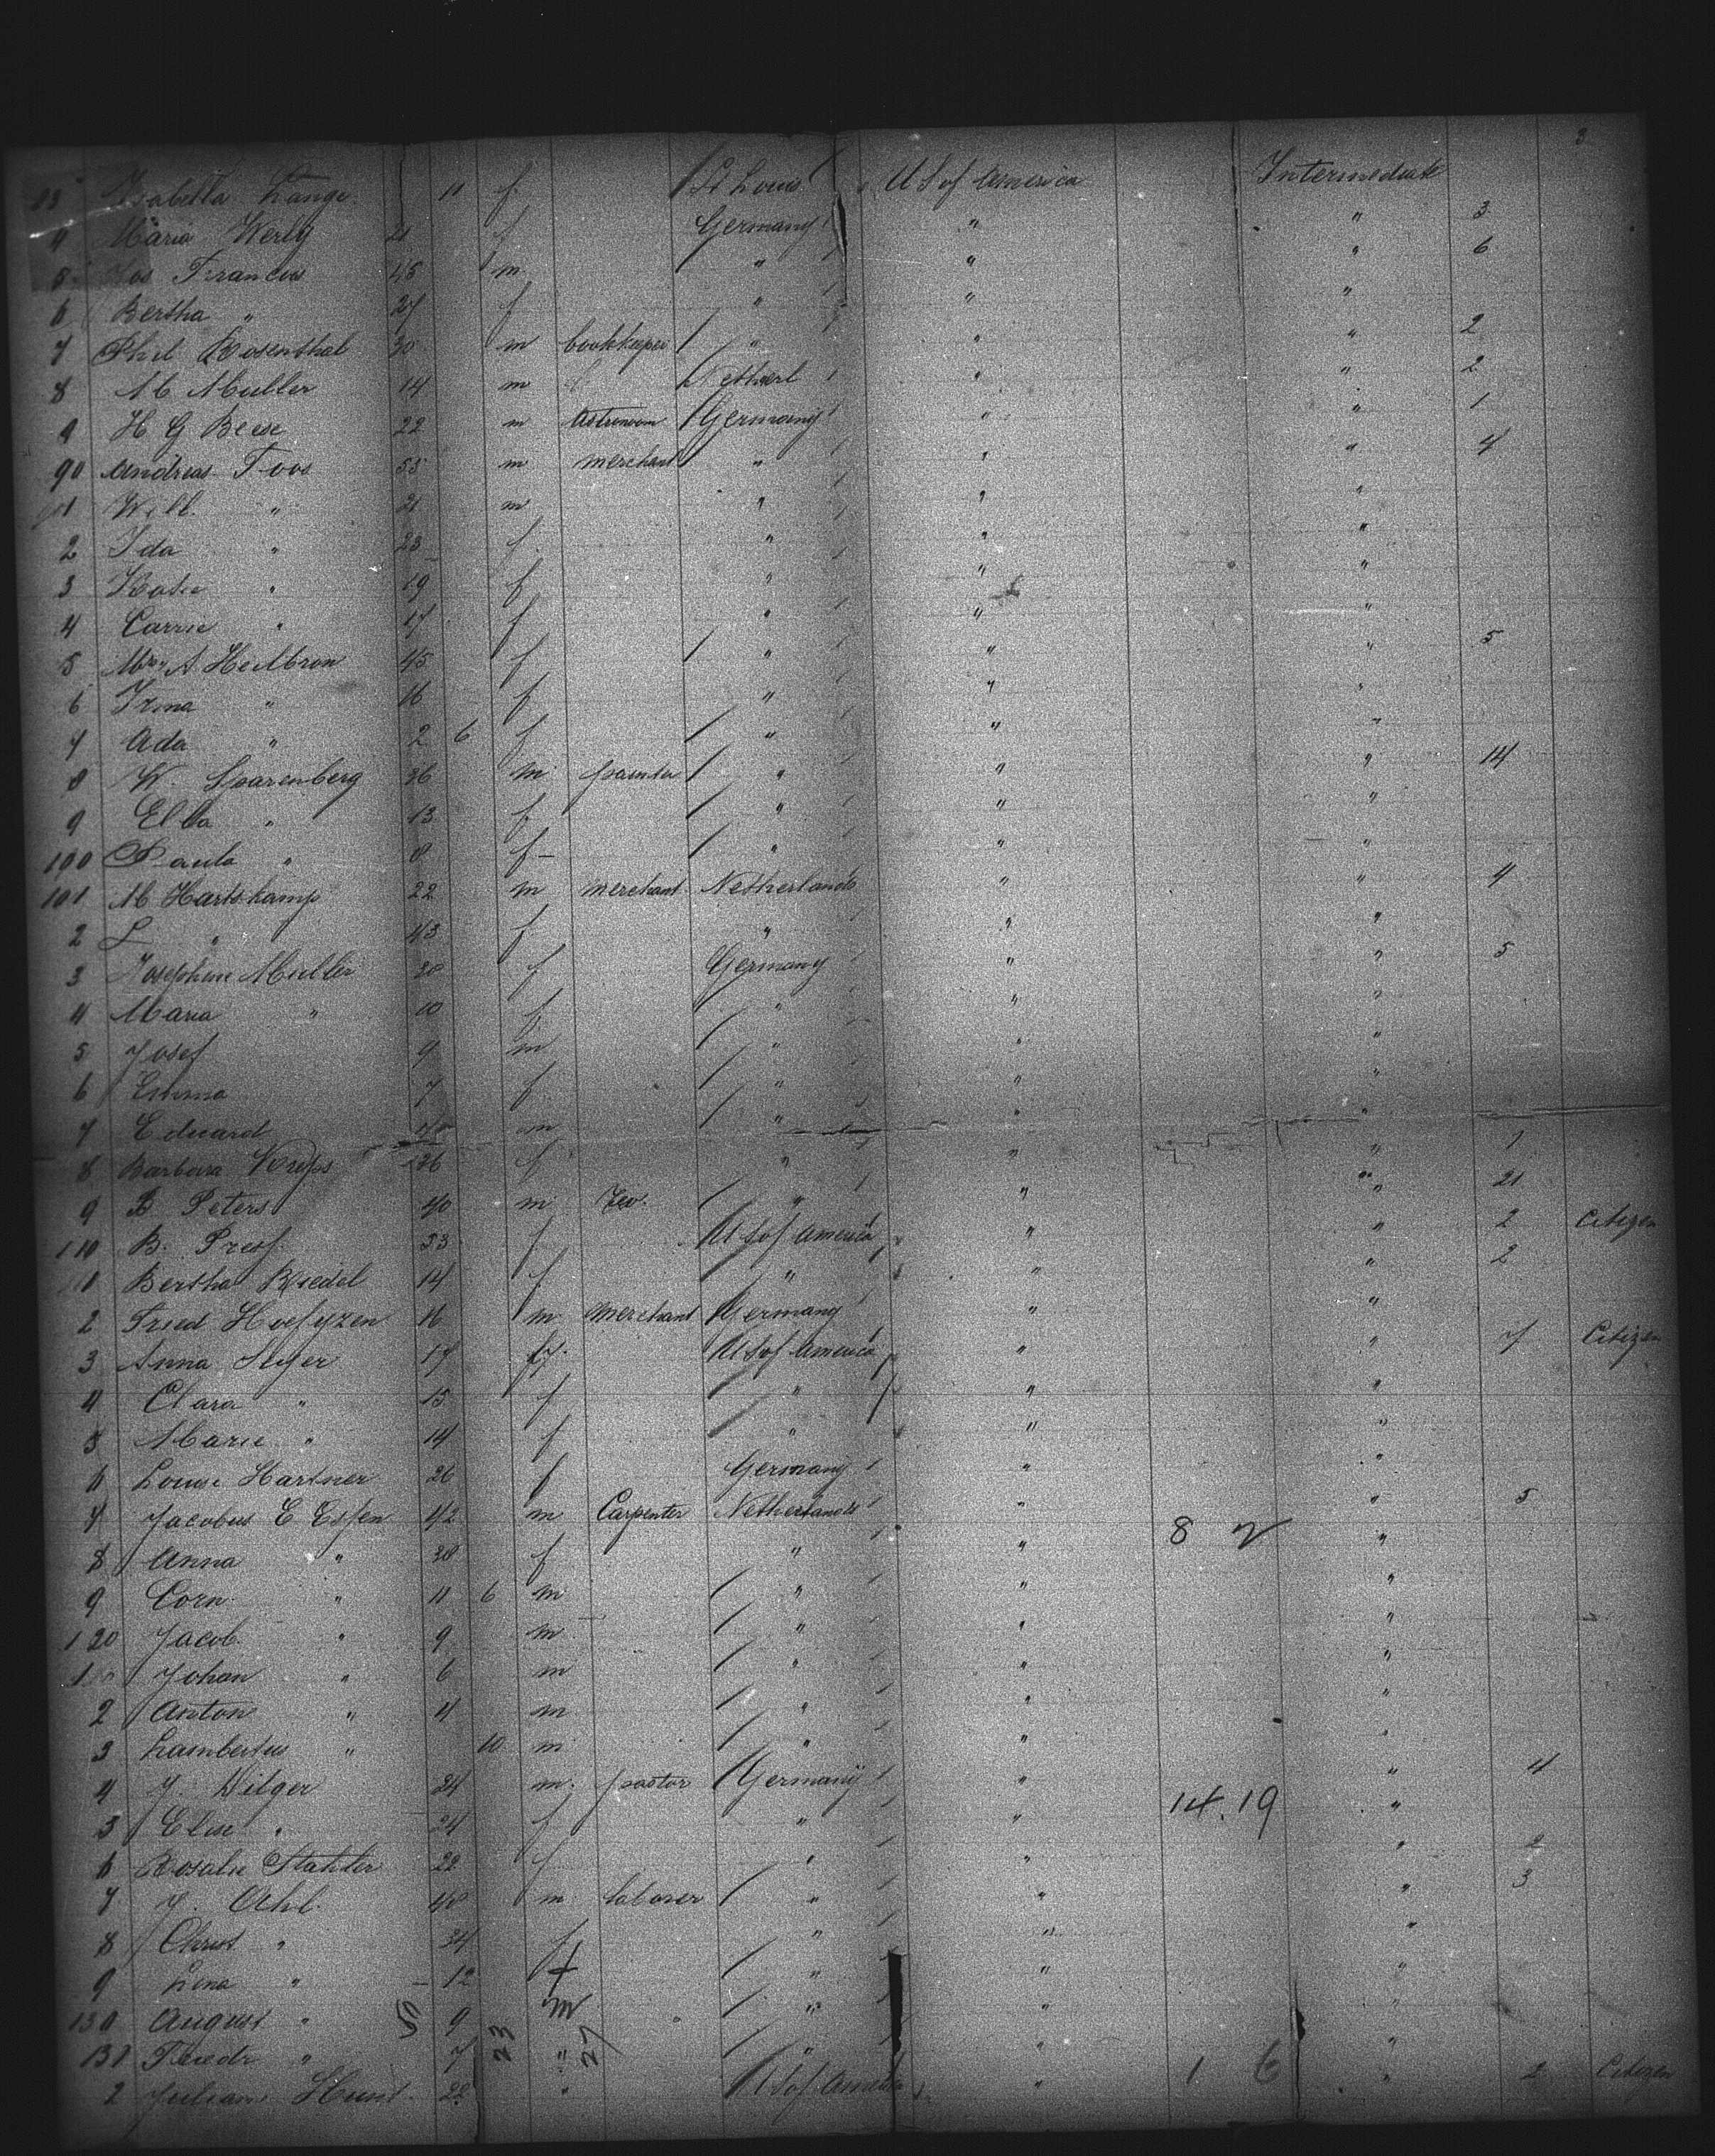 3
Isabella Lange 11 f. St Louis U S of America Intermediate
4 Maria Werly 21 f Germany " " 3
5 Jos Francus 45 m " " " 6
6 Bertha " 27 f " " "
7 Phil Rosenthal 30 m bookkeeper " " " 2
8 M Muller 14 m Netherl " " 2
9 H G Beese 22 m Astronom Germany " " 1
90 Andreas Foos 55 m merchant " " " 4
1 Will. " 21 m " " "
2 Ida " 23 f " " "
3 Katie " 19 f " " "
4 Carrie " 17 f " " "
5 Mrs A. Heilbron 45 f " " " 5
6 Irma " 16 f " " "
7 Ada " 2 6 f " " "
8 W. Sparenberg 36 m painter " " " 14
9 Ella " 13 f " " "
100 Paula " 8 f " " "
101 M Hartskamp 22 m merchant Netherlands " " 4
2 L " 43 f " " "
3 Josephine Muller 28 f Germany " " 5
4 Maria " 10 f " " "
5 Josef 9 m " " "
6 Emma 7 f " " "
7 Eduard m " " "
8 Barbara 36 f " " " 1
9 B Peters 40 m " " " 21
110 B. Press 33 f U S of America " " 2 Citizen
11 Bertha Riedel 14 f " " " 2
2 Fried Hoefyzen 16 m merchant Germany " "
3 Anna Seyer 17 f. U S of America " " 7 Citizen
4 Clara " 15 f " " "
5 Marie " 14 f " " "
6 Louise Hartner 26 f Germany " "
7 Jacobus C Essen 42 m Carpenter Netherlands " " 5
8 Anna " 38 f " " 8 2 "
9 Corn. " 11 6 m " " "
120 Jacob. " 9 m " " "
1 Johan " 6 m " " "
2 Anton " 4 m " " "
3 Lambertus " 10 m " " "
4 J. Dilger 24 m. pastor Germany " " 4
5 Elise " 24 f " " 14.19 "
6 Rosalie Stahler 22 f " " " 2
7 J. Uhl. 40 m laborer " " " 3
8 Christ " 34 f " " "
9 Lena " 12 f " " "
130 August " 9 m " " "
131 Friedr " 7 " " " "
2 Juliane Hunt 22 " U S of America " 1 6 " 2 Citizen
23 27